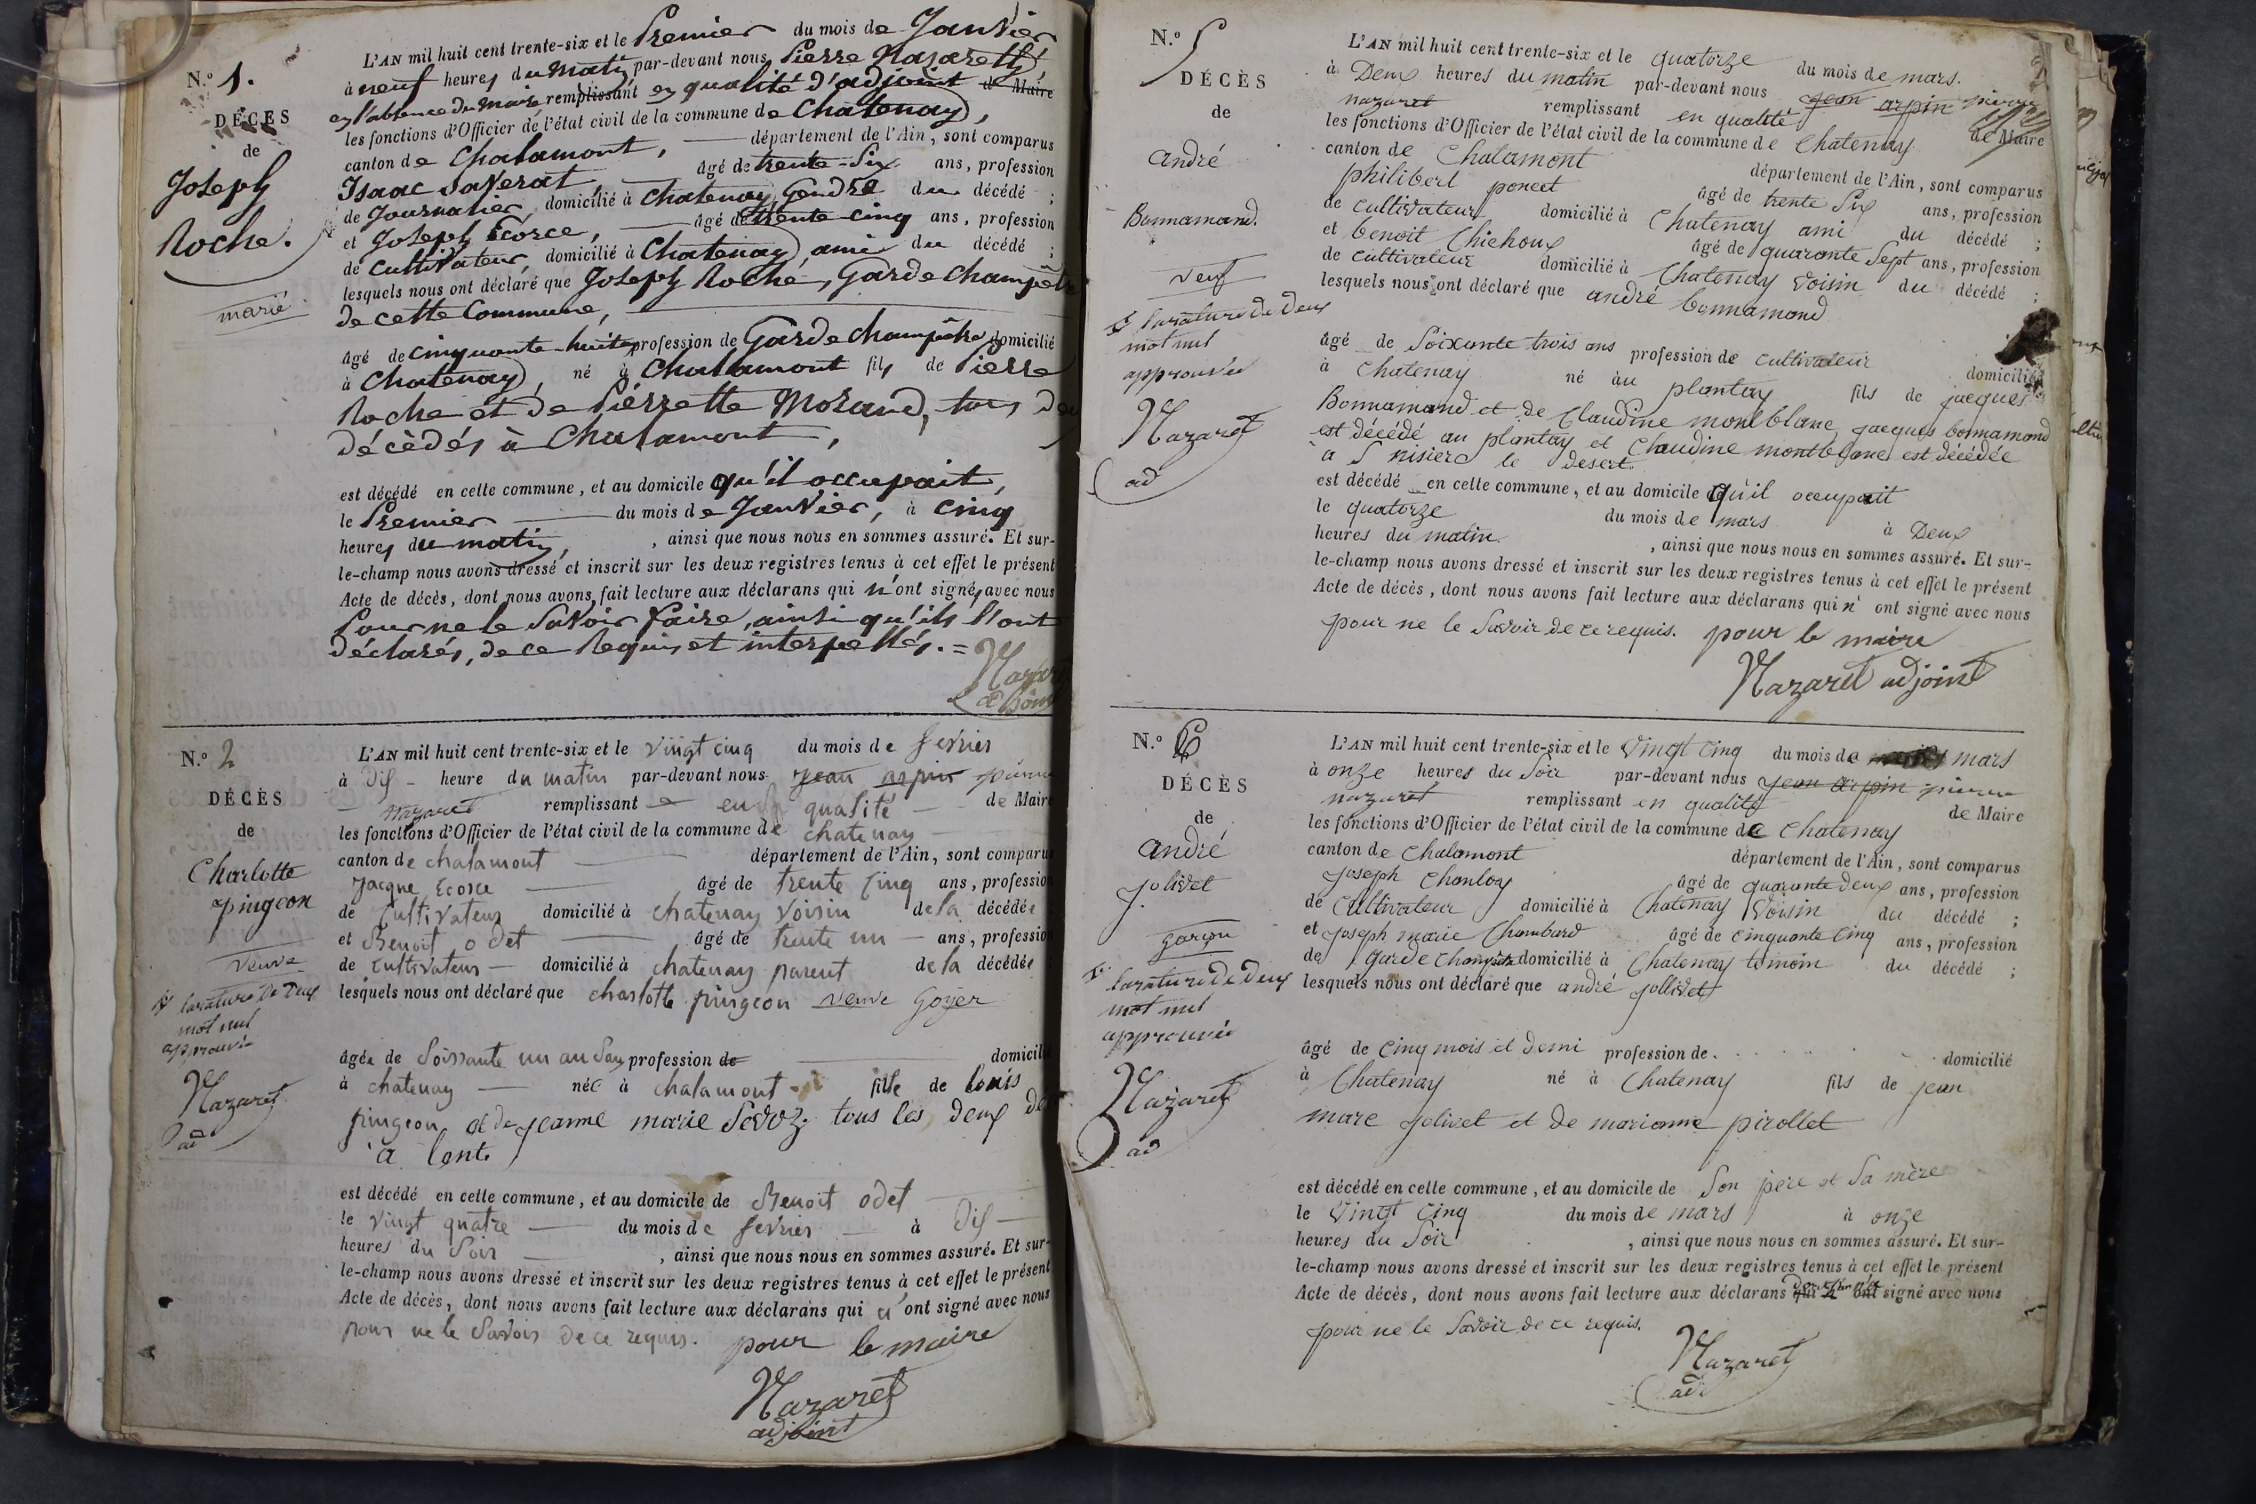 N.° 1.
DÉCÈS
de
Joseph
Roche.
marié
L'AN mil huit cent trente-six et le Premier du mois de Janvier
à neuf heures du matin par-devant nous Pierre Nazareth,
en l'absence du Maire, remplissant en qualité d'adjoint de Maire
les fonctions d'Officier de l'état civil de la commune de Châtenay,
canton de Chalamont, département de l'Ain, sont comparus
Isaac Saverat âgé de trente-six ans, profession
de Journalier, domicilié à Chatenay, Gendre du décédé ;
et Joseph Ecorce, âgé de trente-cinq ans, profession
de Cultivateur, domicilié à Chatenay, ami du décédé ;
lesquels nous ont déclaré que Joseph Roche, Garde Champêtre
de cette Commune,
âgé de cinquante-huit profession de Garde Champêtre domicilié
à Chatenay, né à Chalamont fils de Pierre
Roche et de Pierrette Morand, tous deux
décèdés à Chalamont,
est décédé en cette commune, et au domicile qu'il occupait,
le Premier du mois de Janvier, à cinq
heures du matin, , ainsi que nous nous en sommes assuré. Et sur-
le-champ nous avons dressé et inscrit sur les deux registres tenus à cet effet le présent
Acte de décès, dont nous avons fait lecture aux déclarans qui n'ont signé, avec nous
Pour ne le Savoir faire, ainsi qu'ils l'ont
déclarés, de ce Requis et interpellés. =
Nazaret
adjoint
N.° 2
DÉCÈS
de
Charlotte
pingeon
veuve
la rature de deux
mot nul
approuvée
Nazaret
ad
L'AN mil huit cent trente-six et le vingt cinq du mois de fevrier
à dix heure du matin par-devant nous jean arpin pierre
nazaret remplissant en qualité de Maire
les fonctions d'Officier de l'état civil de la commune de chatenay
canton de chalamont département de l'Ain, sont comparus
Jacque Ecorce âgé de trente cinq ans, profession
de cultivateur domicilié à chatenay voisin de la décédée
et Benoit odet âgé de trente un ans, profession
de cultivateur domicilié à chatenay parent de la décédée
lesquels nous ont déclaré que charlotte pingeon veuve Goyer
âgée de soissante un an profession de domicilié
à chatenay née à chalamont fille de louis
pingeon et de jeanne marie Sevoz tous les deux
à lente
est décédé en cette commune, et au domicile de Benoit odet
le vingt quatre du mois de fevrier à dix
heures du soir , ainsi que nous nous en sommes assuré. Et sur-
le-champ nous avons dressé et inscrit sur les deux registres tenus à cet effet le présent
Acte de décès, dont nous avons fait lecture aux déclarans qui n'ont signé avec nous
pour ne le savoir de ce requis. pour le maire
Nazaret
adjoint
N.° 5
DÉCÈS
de
andré
Bonnamand.
veuf
la rature de deux
mot nul
approuvée
Nazaret
ad
L'AN mil huit cent trente-six et le quatorze du mois de mars.
à Deux heures du matin par-devant nous jean arpin pierre
nazaret remplissant en qualité de Maire
les fonctions d'Officier de l'état civil de la commune de Chatenay
canton de Chalamont département de l'Ain, sont comparus
philibert poncet âgé de trente six ans, profession
de cultivateur domicilié à Chatenay ami du décédé ;
et benoit Chichoux âgé de quarante sept ans, profession
de cultivateur domicilié à Chatenay voisin du décédé ;
lesquels nous ont déclaré que andré bonnamond
âgé de soixante trois ans profession de cultivateur domicilié
à Chatenay né au plantay fils de jacques
Bonnamand et de Claudine montblanc, jacques bonnamond
est décédé au plantay et Claudine montblanc est décédée
à S nisier le desert.
est décédé en cette commune, et au domicile qu'il occupait
le quatorze du mois de mars à Deux
heures du matin , ainsi que nous nous en sommes assuré. Et sur-
le-champ nous avons dressé et inscrit sur les deux registres tenus à cet effet le présent
Acte de décès, dont nous avons fait lecture aux déclarans qui n'ont signé avec nous
pour ne le savoir de ce requis. pour le maire
Nazaret adjoint
N.° 6
DÉCÈS
de
andré
jolivet
garçon
la rature de deux
mot nul
approuvée
Nazaret
ad
L'AN mil huit cent trente-six et le vingt cinq du mois de mars
à onze heures du soir par-devant nous jean arpin pierre
nazaret remplissant en qualité de Maire
les fonctions d'Officier de l'état civil de la commune de Chatenay
canton de Chalamont département de l'Ain, sont comparus
joseph Chanloy âgé de quarante deux ans, profession
de cultivateur domicilié à Chatenay voisin du décédé ;
et joseph marie Chambard âgé de cinquante cinq ans, profession
de garde champêtre domicilié à Chatenay témoin du décédé ;
lesquels nous ont déclaré que andré jollivet
âgé de cinq mois et demi profession de domicilié
à Chatenay né à Chatenay fils de jean
marc jolivet et de marianne pirollet
est décédé en cette commune, et au domicile de son père et sa mère
le vingt cinq du mois de mars à onze
heures du soir , ainsi que nous nous en sommes assuré. Et sur-
le-champ nous avons dressé et inscrit sur les deux registres tenus à cet effet le présent
Acte de décès, dont nous avons fait lecture aux déclarans qui ont signé avec nous
pour ne le savoir de ce requis.
Nazaret
ad